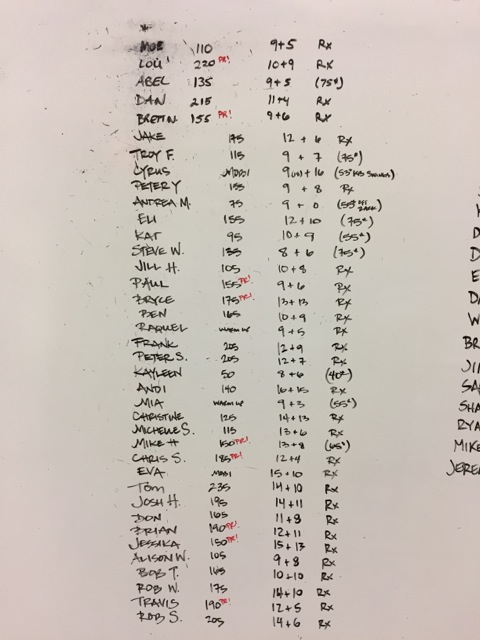 *
MOE 110 9+5 Rx
LOU 220 PR! 10+9 Rx
ABEL 135 9+5 (75#)
DAN 215 11+4 Rx
BRETTN 155 PR! 9+6 Rx
JAKE 175 12 + 6 Rx
TROY F. 115 9 + 7 (75#)
CYRUS 9 + 16
PETER Y 155 9 + 8 Rx
ANDREA M. 75 9 + 0 (55# OFF RACK)
ELI 155 12 + 10 (75#)
KAT 95 10 + 9 (55#)
STEVE W. 135 8 + 6 (75#)
JILL H. 105 10+8 Rx
PAUL 155 PR! 9+6 Rx
BRYCE 175 PR! 13+13 Rx
BEN 165 10+9 Rx
RAQUEL WARM UP 9+5 Rx
FRANK 205 12+9 Rx
PETER S. 205 12+7 Rx
KAYLEEN 50 8+6 (40#)
ANDI 140 16+15 Rx
MIA WARM UP 9+3 (55#)
CHRISTINE 125 14+13 Rx
MICHELLE S. 115 13+6 Rx
MIKE H 150 PR! 13+8 (65#)
CHRIS S. 185 PR! 12+4 Rx
EVA 15+10 Rx
TOM 235 14+10 Rx
JOSH H. 195 14+11 Rx
DON 165 11+8 Rx
BRIAN 190 PR! 12+11 Rx
JESSIKA 150 PR! 15+13 Rx
ALISON W. 105 9+8 Rx
BOB T. 165 10+10 Rx
ROB W. 175 14+10 Rx
TRAVIS 190 PR! 12+5 Rx
ROB S. 205 14+6 Rx
D
D
E
DA
W
BR
JIL
SA
SHA
RYA
MIKE
JEREM